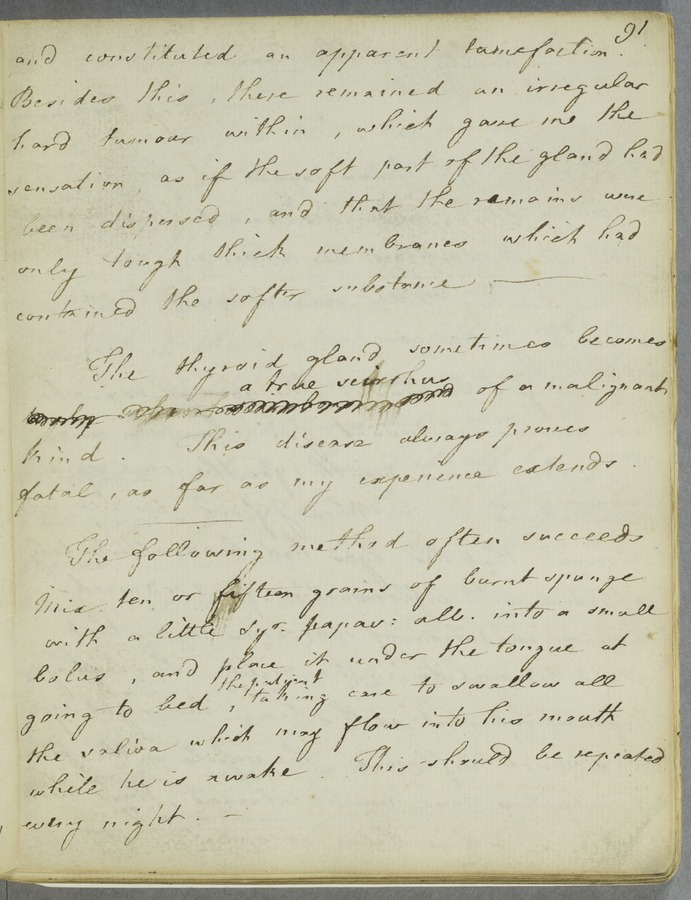 91
and constituted an apparent tumefaction.
Besides this, there remained an irregular
hard tumour within, which gave me the
sensation, as if the soft part of the gland had
been dispersed, and that the remains were
only tough thick membranes which had
contained the softer substance —
The thyroid gland sometimes becomes
a true scirrhus
of a malignant
kind. This disease always proves
fatal, as far as my experience extends.
The following method often succeeds
Mix ten or fifteen grains of burnt spunge
with a little syr. papav: alb. into a small
bolus, and place it under the tongue at
the patient
going to bed, taking care to swallow all
the saliva which may flow into his mouth
while he is awake. This should be repeated
every night. —